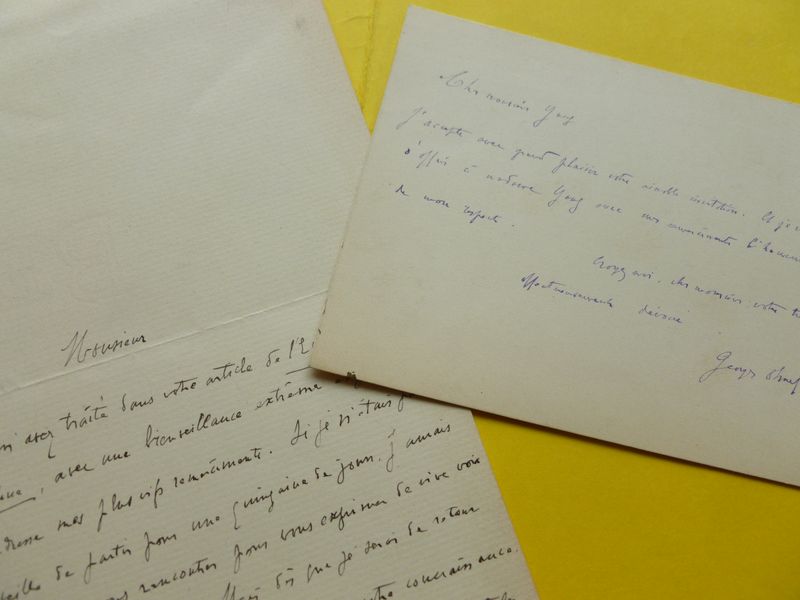 Cher monsieur Yung
J'accepte avec grand plaisir votre aimable invitation. Et je
d'offrir à madame Yung avec mes remerciements l'hommage
de mon respect.
Croyez moi, cher monsieur, votre
affectueusement dévoué
Georges
Monsieur
avez traité dans votre article de l'
, avec une bienveillance extrême
mes plus vifs remerciements. Si je n'étais
de partir pour une quinzaine de jours, j'aurais
rencontrer pour vous exprimer de vive voix
Mais dès que je serai de retour
connaissance.